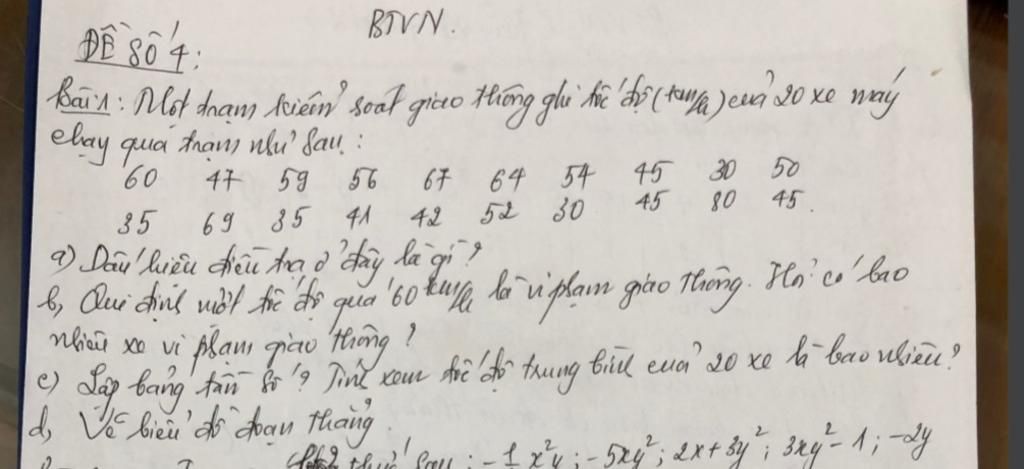 BTVN.
ĐỀ SỐ 4:
Bài 1: Một trạm kiểm soát giao thông ghi tốc độ (km/h) của 20 xe máy
chạy qua trạm như sau:
60 47 59 56 67 64 54 45 30 50
35 69 35 41 42 52 30 45 80 45.
a) Dấu hiệu điều tra ở đây là gì?
b, Qui định vượt tốc độ quá 60 km/h là vi phạm giao thông. Hỏi có bao
nhiêu xe vi phạm giao thông?
c) Lập bảng tần số? Tính xem tốc độ trung bình của 20 xe là bao nhiêu?
d, Vẽ biểu đồ đoạn thẳng.
thức sau: -1 x²y; -5xy²; 2x+3y²; 3xy²-1; -2y